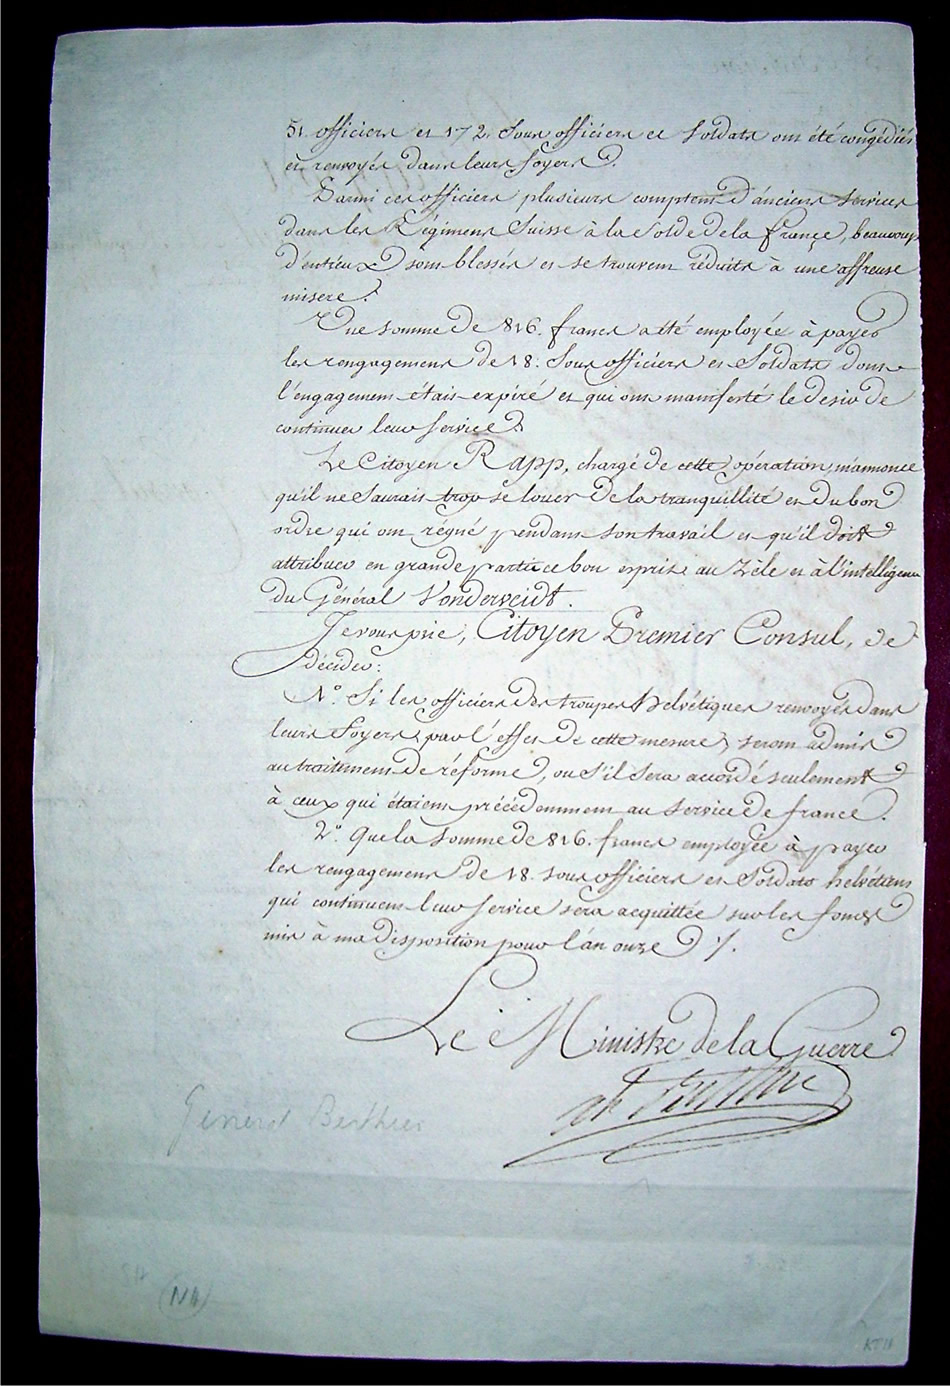 51. officiers et 172. Sous officiers et Soldats ont été congédiés
et renvoyés dans leurs foyers.
Parmi ces officiers plusieurs comptent d'anciens services
dans les Régimens Suisse à la Solde de la france, beaucoup
d'entreux sont blessés et se trouvent réduits à une affreuse
misere.
Une somme de 816. francs a été employée à payer
les rengagemens de 18. Sous officiers et Soldats dont
l'engagement était expiré et qui ont manifesté le desir de
continuer leur service.
Le Citoyen Rapp, chargé de cette opération, m'annonce
qu'il ne Saurait trop se louer de la tranquillité et du bon
ordre qui ont régné pendant son travail et qu'il doit
attribuer en grande partie ce bon esprit au Zèle et à l'intelligence
du Général Vonderveidt.
Je vous prie, Citoyen Premier Consul, de
décider:
1.° Si les officiers des troupes helvétiques renvoyés dans
leurs foyers, par l'effet de cette mesure, seront admis
au traitement de réforme, ou s'il sera accordé seulement
à ceux qui étaient précédemment au service de france.
2.° Que la somme de 816. francs employée à payer
les rengagemens de 18. sous officiers et Soldats helvétiens
qui continuent leur service sera acquittée sur les fonds
mis à ma disposition pour l'an onze ./.
Le Ministre de la Guerre
Al Berthier
General Berthier
(NA)